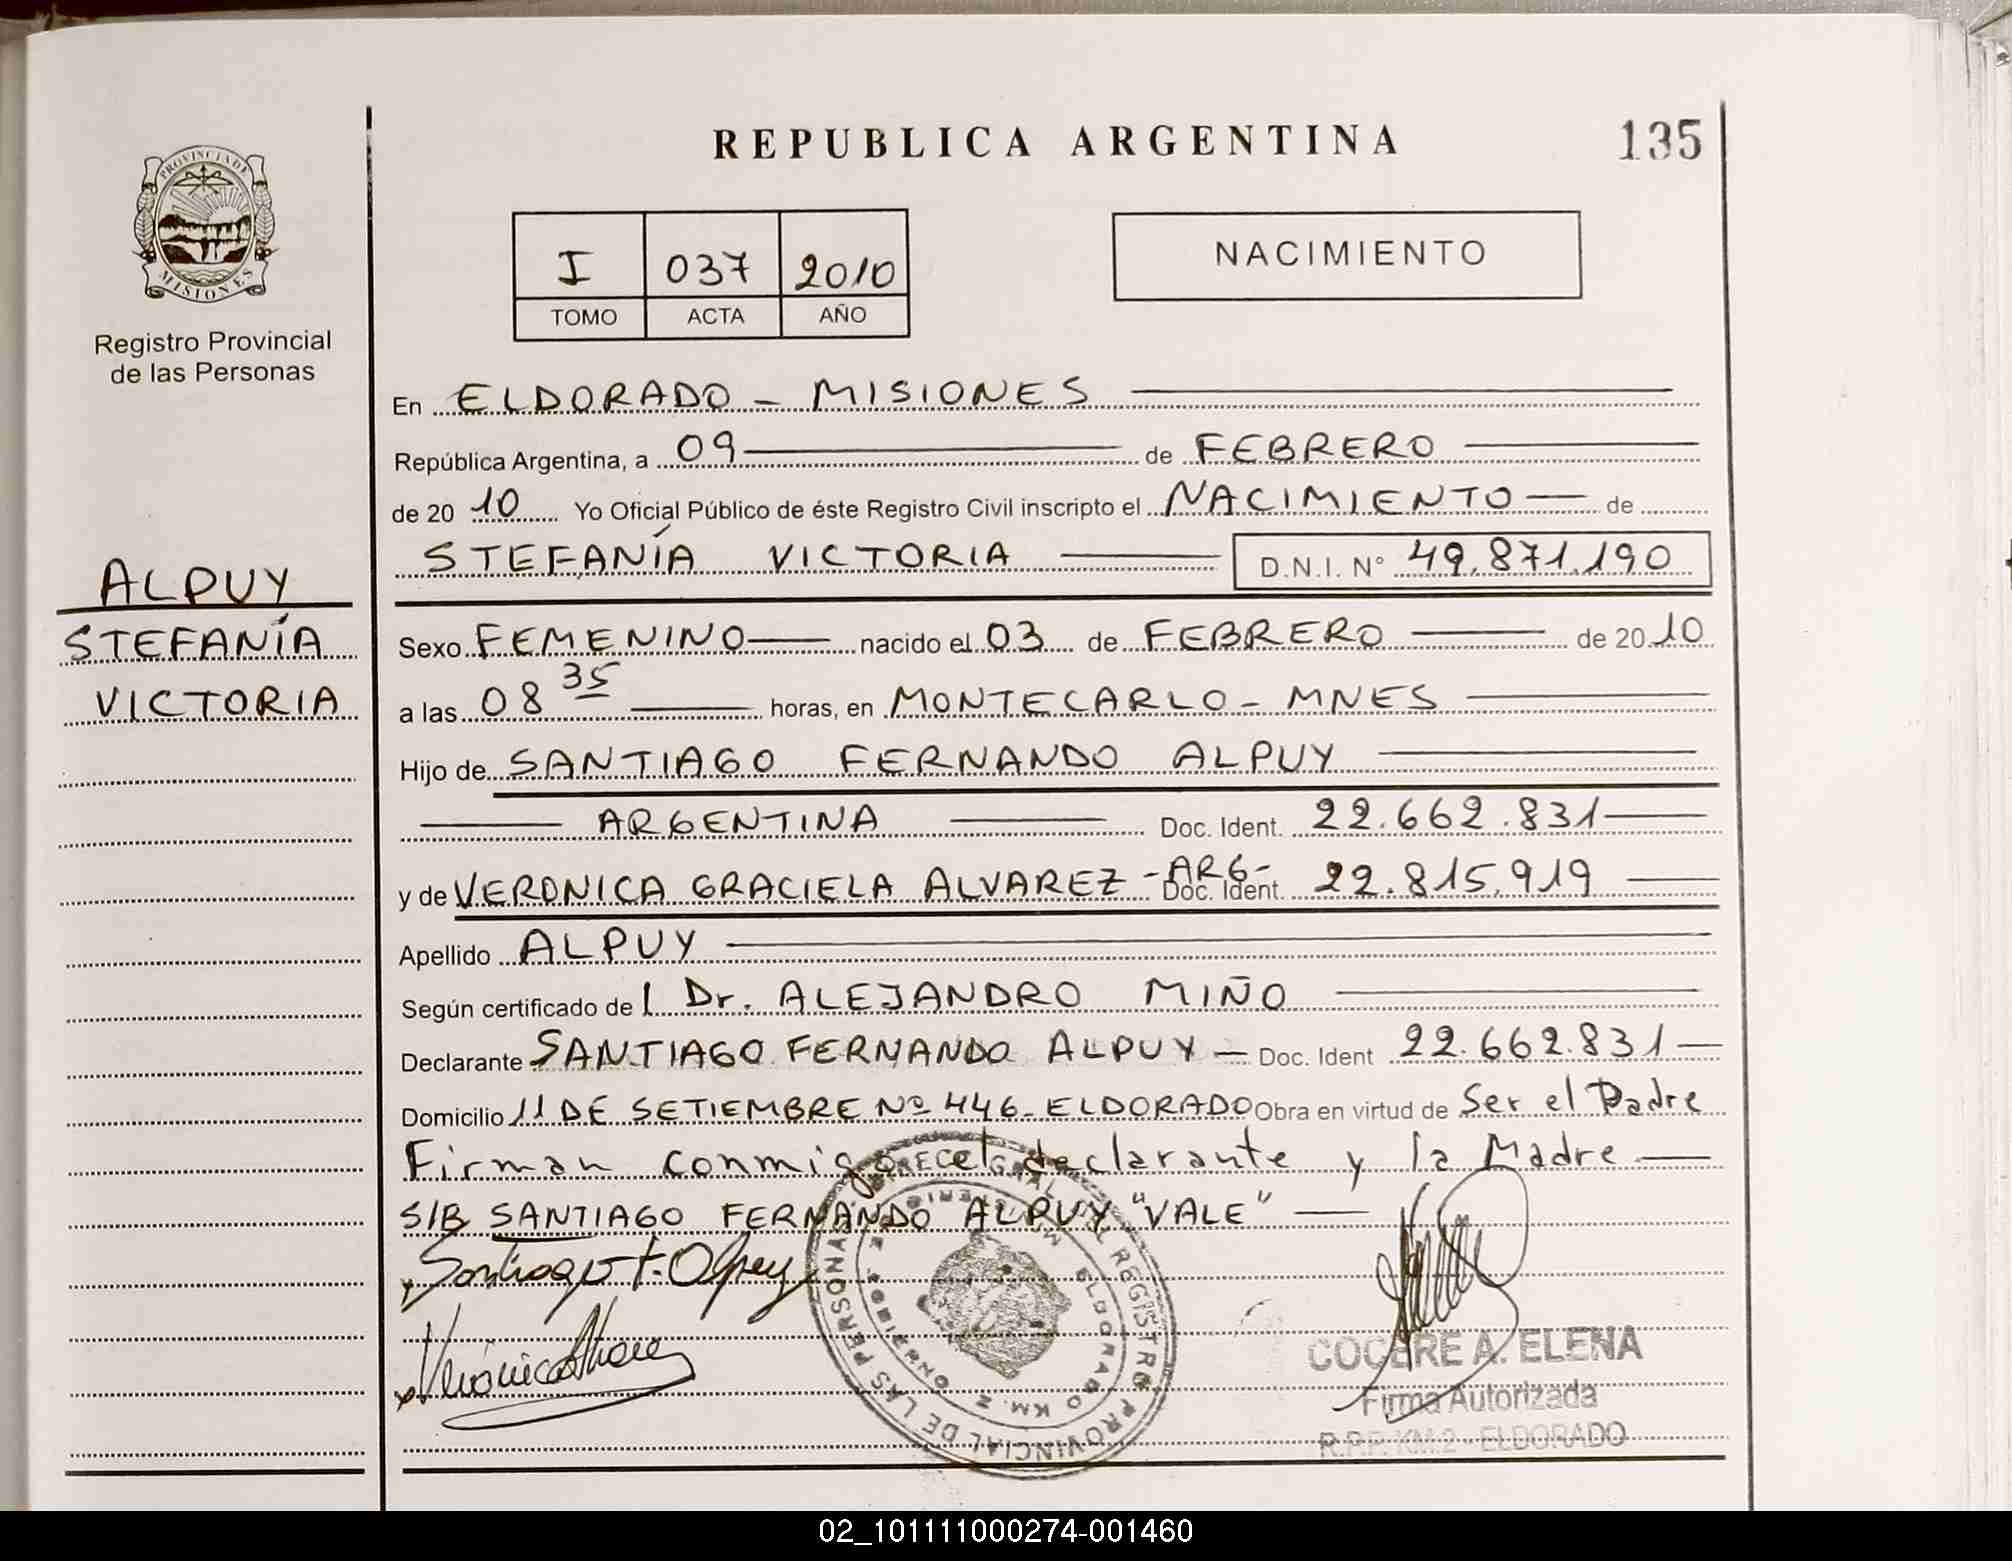 REPUBLICA ARGENTINA
135
PROVINCIA DE
MISIONES
Registro Provincial
de las Personas
I 037 2010
TOMO ACTA AÑO
NACIMIENTO
En ELDORADO - MISIONES
República Argentina, a 09 de FEBRERO
de 20 10 Yo Oficial Público de éste Registro Civil inscripto el NACIMIENTO de
STEFANÍA VICTORIA D.N.I. N° 49.871.190
ALPUY
STEFANÍA
VICTORIA
Sexo FEMENINO nacido el 03 de FEBRERO de 20 10
a las 08 35 horas, en MONTECARLO - MNES
Hijo de SANTIAGO FERNANDO ALPUY
ARGENTINA Doc. Ident. 22.662.831
y de VERONICA GRACIELA ALVAREZ -ARG- Doc. Ident. 22.815.919
Apellido ALPUY
Según certificado de l Dr. ALEJANDRO MIÑO
Declarante SANTIAGO FERNANDO ALPUY - Doc. Ident 22.662.831
Domicilio 11 DE SETIEMBRE Nº 446 - ELDORADO Obra en virtud de Ser el Padre
Firman conmigo el declarante y la Madre
S/B SANTIAGO FERNANDO ALPUY "VALE"
Santiago F. Alpuy
Verónica Alvarez
REGISTRO PROVINCIAL DE LAS PERSONAS
ELDORADO KM. 2
COCERE A. ELENA
Firma Autorizada
R.P.P. KM.2 - ELDORADO
02_101111000274-001460